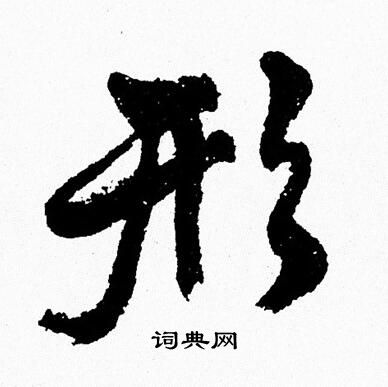 形
词典网